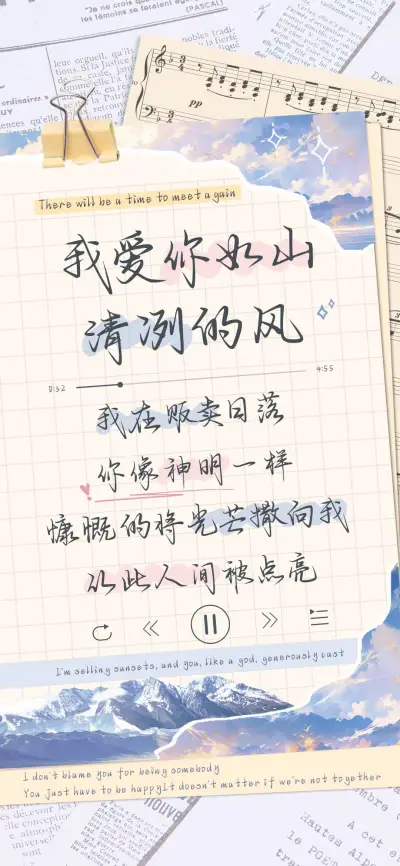 "Je ne crois que
les témoins se feraient égorger"
(PASCAL)
There will be a time to meet a gain
我爱你如山
清冽的风
0:32
4:55
我在贩卖日落
你像神明一样
慷慨的将光芒撒向我
从此人间被点亮
I'm selling sunsets, and you, like a god, generously cast
I don't blame you for being somebody
You just have to be happyIt doesn't matter if we're not together